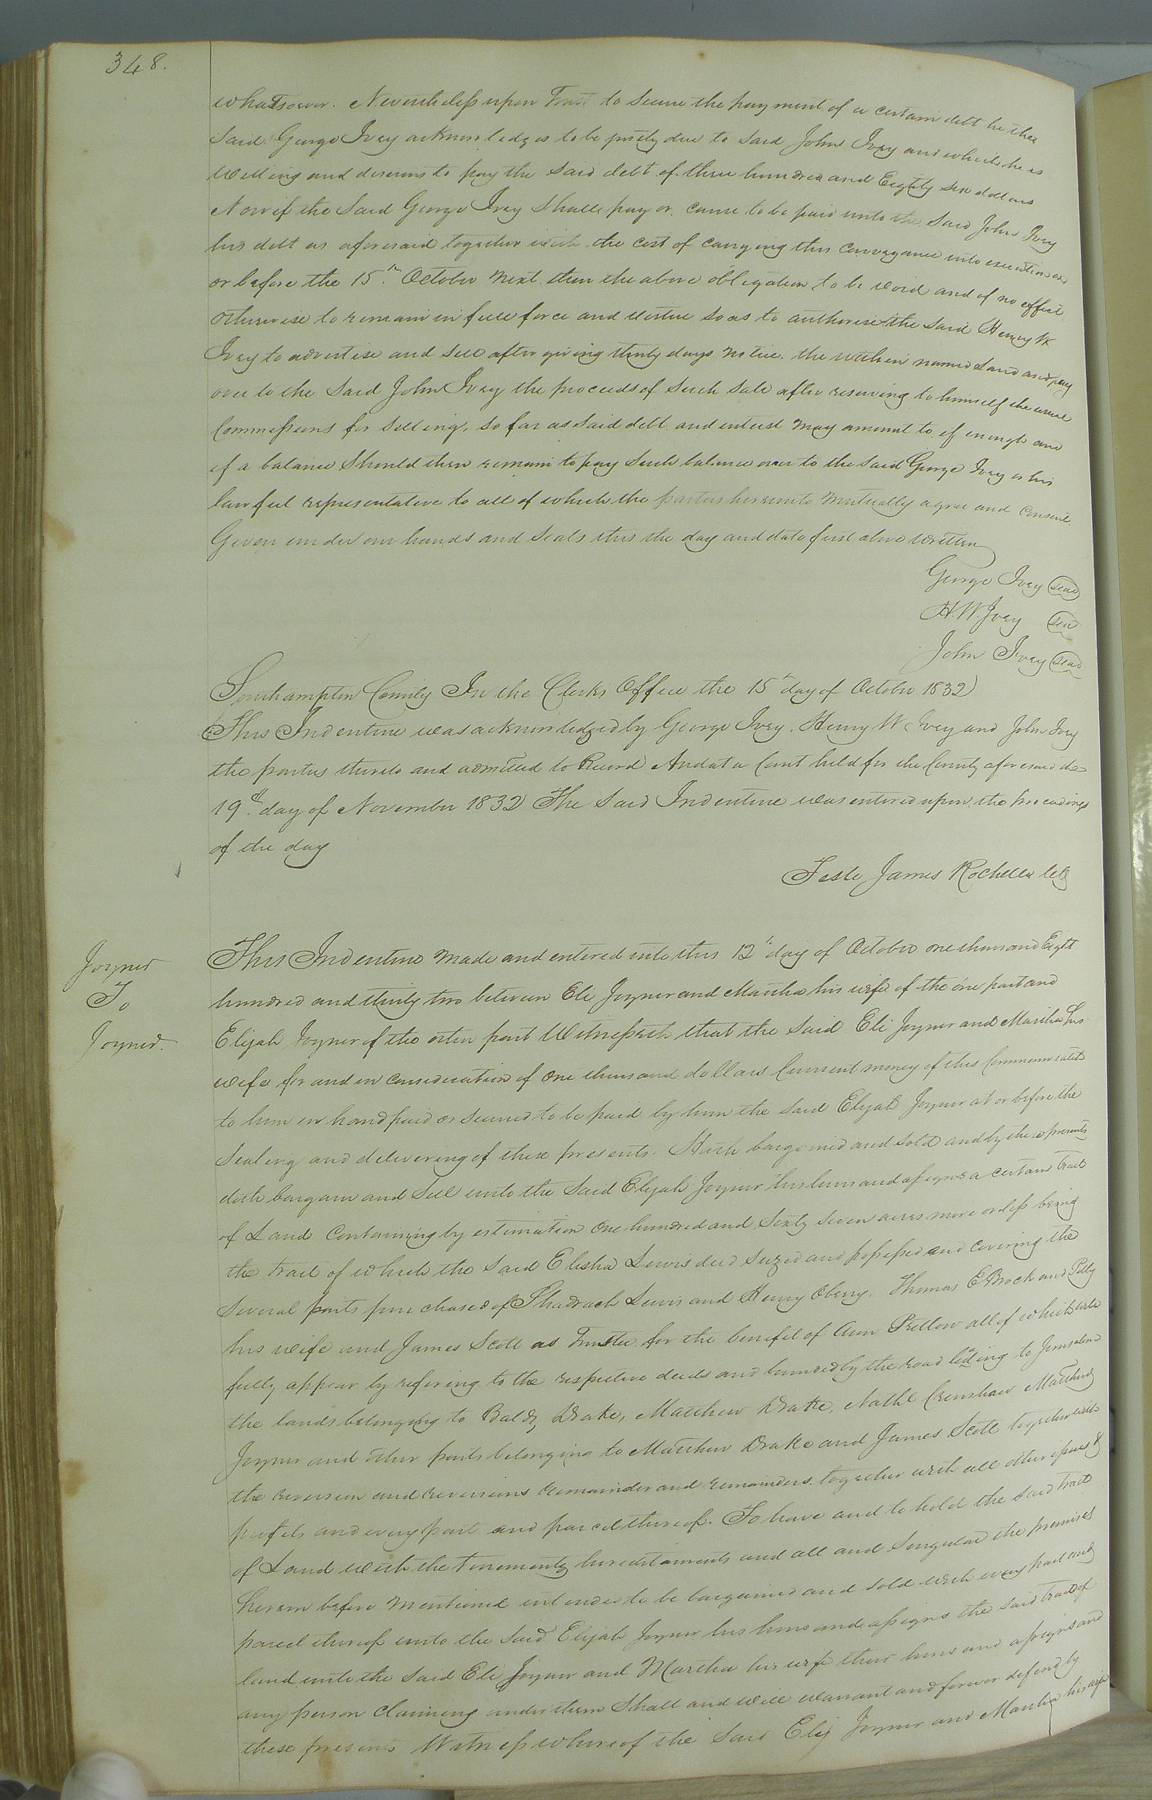 348.
whatsoever. Nevertheless upon Trust to secure the payment of a certain debt he the
said George Ivey acknowledges to be justly due to said John Ivey and which he is
willing and desirous to pay the said debt of three hundred and Eighty six dollars
Now if the Said George Ivey shall pay or cause to be paid unto the said John Ivey
his debt as aforesaid together with the cost of carrying this conveyance into execution on
or before the 15th October next then the above obligation to be void and of no effect
otherwise to remain in full force and virtue so as to authorise the said Henry W
Ivey to advertise and sell after giving thirty days notice the within named Land and pay
over to the said John Ivey the proceeds of such sale after reserving to himself the usual
Commissions for selling, so far as said debt and interest may amount to if enough and
if a balance should then remain to pay such balance over to the said George Ivey or his
lawful representative to all of which the parties hereunto mutually agree and consent
Given under our hands and seals this the day and date first above written
George Ivey seal
H. W. Ivey seal
John Ivey seal
Southampton County In the Clerks Office the 15th day of October 1832
This Indenture was acknowledged by George Ivey, Henry W Ivey and John Ivey
the parties thereto and admitted to Record And at a Court held for the County aforesaid the
19th day of November 1832 The said Indenture was entered upon the proceedings
of the day
Teste James Rochelle clk
Joyner
To
Joyner.
This Indenture made and entered into this 12th day of October one thousand Eight
hundred and thirty two between Eli Joyner and Martha his wife of the one part and
Elijah Joyner of the other part Witnesseth that the said Eli Joyner and Martha his
wife for and in consideration of one thousand dollars Current money of this Commonwealth
to him in hand paid or secured to be paid by him the said Elijah Joyner at or before the
sealing and delivering of these presents. Hath bargained and sold and by these presents
doth bargain and sell unto the said Elijah Joyner his heirs and assigns a certain tract
of Land Containing by estimation one hundred and sixty seven acres more or less being
the tract of which the said Elisha Lewis died seized and possessed and covering the
several parts purchased of Shadrach Lewis and Henry Oberry. Thomas E Brock and Polly
his wife and James Scott as Trustee for the benefit of Ann Pretlow all of which will
fully appear by refering to the respective deeds and bounded by the road leading to Jerusalem
the lands belonging to Baldy Drake, Matthew Drake, Nathl Crenshaw Matthew
Joyner and other parts belonging to Matthew Drake and James Scott together with
the reversion and reversions remainder and remainders together with all other
profits and every part and parcel thereof. To have and to hold the said tract
of Land with the tenements hereditaments and all and singular the premises
herein before mentioned intended to be bargained and sold with every part and
parcel thereof unto the said Elijah Joyner his heirs and assigns the said tract of
land unto the said Eli Joyner and Martha his wife their heirs and assigns and
any person claiming under them shall and will warrant and forever defend by
these presents Witness whereof the said Eli Joyner and Martha his wife